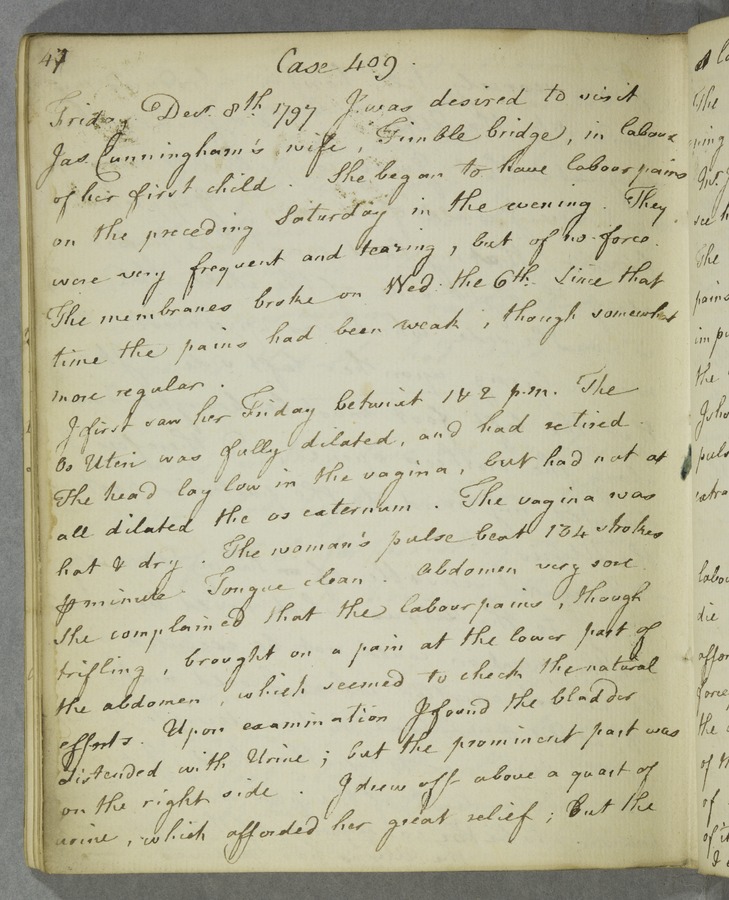 47
Case 409.
Friday Decr. 8th 1797 I was desired to visit
Jas. Cunningham's wife, Timble bridge, in labour
of her first child. She began to have labour pains
on the preceding Saturday in the evening. They
were very frequent and teazing, but of no force.
The membranes broke on Wed: the 6th. Since that
time the pains had been weak, though somewhat
more regular.
I first saw her Friday betwixt 1 & 2 p.m. The
Os Uteri was fully dilated, and had retired.
The head lay low in the vagina, but had not at
all dilated the os externum. The vagina was
hot & dry. The woman's pulse beat 134 strokes
℘ minute. Tongue clean. Abdomen very sore.
She complained that the labour pains, though
trifling, brought on a pain at the lower part of
the abdomen, which seemed to check the natural
efforts. Upon examination I found the bladder
distended with Urine; but the prominent part was
on the right side. I drew off above a quart of
urine, which afforded her great relief; but the